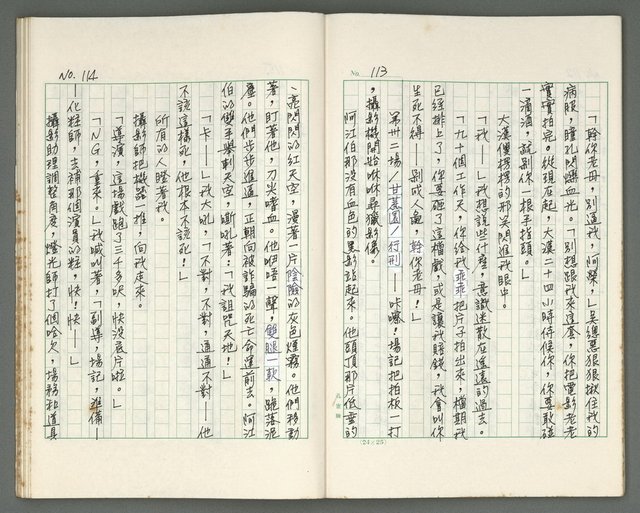 No. 113
「幹你老母，別逼我，阿榮，」吳總惡狠狠揪住我的
病服，瞳孔閃爍血光。「別想跟我來這套，你把電影老老
實實拍完。從現在起，大漢二十四小時侍候你，你要敢碰
一滴酒，就剁你一根手指頭。」
大漢僵愣愣的邪笑閃進我眼中。
「我——」我想說些什麼，意識迷散在遙遠的過去。
「九十個工作天，你給我乖乖把片子拍出來，檔期我
已經排上了，你要砸了這檔戲，或是讓我賠錢，我會叫你
生死不得——剁成人彘，幹你老母！」
第卅二場／甘蔗園／行刑——咔嚓！場記把拍板一打
，攝影機開始咻咻尋獵影像。
阿江伯那沒有血色的黑影站起來。他頭頂那片低垂的
(24×25)
No. 114
、亮閃閃的紅天空，漫著一片陰陰的灰色煙霧。他們移動
著，盯著他，刀尖嗜血。他咿唔一聲，雙腿一軟，跪落泥
塵。他們步步進逼，正朝向被詐騙的死亡命運前去。阿江
伯的雙手舉刺天空，嘶吼著：「我詛咒天地！」
「卡——」我大吼，「不對，不對，通通不對——他
不該這樣死，他根本不該死！」
所有的人瞪著我。
攝影師把機器一推，向我走來。
「導演，這場戲跑了三千多呎，快沒底片啦。」
「NG，重來。」我喊叫著，「副導、場記，準備——
——化粧師，去補那個演員的粧，快！快——」
攝影助理調整角度，燈光師打了個哈欠，場務和道具